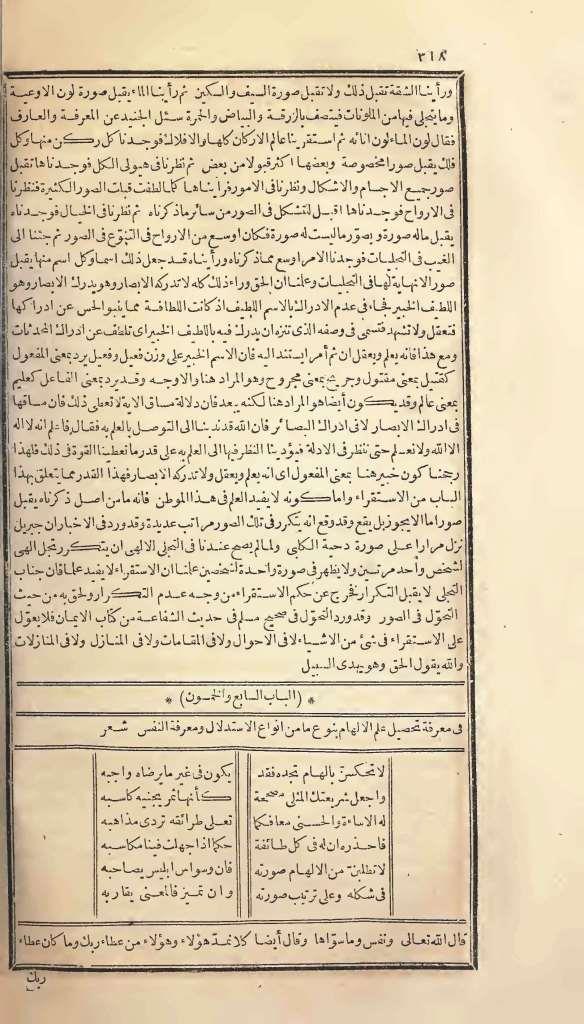 ٣١٨
ورأينا الشقة تقبل ذلك ولا تقبل صورة السيف والسكين ثم رأينا الماء يقبل صورة لون الاوعية
وما يتجلى فيها من الملونات فيتصف بالزرقة والبياض والحمرة سئل الجنيد عن المعرفة والعارف
فقال لون الماء لون انائه ثم استقرينا عالم الاركان كلها والافلاك فوجدنا كل ركن منها وكل
فلك يقبل صورا مخصوصة وبعضها اكثر قبولا من بعض ثم نظرنا فى هيولى الكل فوجدناها تقبل
صور جميع الاجسام والاشكال ونظرنا فى الامور فرأيناها كلما لطفت قبلت الصور الكثيرة فنظرنا
فى الارواح فوجدناها اقبل للتشكل فى الصور من سائر ماذكرناه ثم نظرنا فى الخيال فوجدناه
يقبل ماله صورة ويصوّر ماليست له صورة فكان اوسع من الارواح فى التنوّع فى الصور ثم جئنا الى
الغيب فى التجليات فوجدنا الامر اوسع مما ذكرناه ورأيناه قد جعل ذلك اسما وكل اسم منها يقبل
صورا لانهاية لها فى التجليات وعلمنا ان الحق وراء ذلك كله لاتدركه الابصار وهو يدرك الابصار وهو
اللطيف الخبير فجاء فى عدم الادراك بالاسم اللطيف اذ كانت اللطافة مما ينبو الحس عن ادراكها
فتعقل ولا تشهد فتسمى فى وصفه الذى تنزه ان يدرك فيه باللطيف الخبير اى تلطف عن ادراك المحدثات
ومع هذا فانه يعلم ويعقل ان ثم أمرا يستند اليه فان الاسم الخبير على وزن فعيل وفعيل يرد بمعنى المفعول
كقتيل بمعنى مقتول وجريح بمعنى مجروح وهو المراد هنا والاوجه وقد يرد بمعنى الفاعل كعليم
بمعنى عالم وقد يكون أيضا هو المراد هنا لكنه يبعد فان دلالة مساق الاية لا تعطى ذلك فان مساقها
فى ادراك الابصار لافى ادراك البصائر فان الله قد ندبنا الى التوصل بالعلم به فقال فاعلم انه لا اله
الا الله ولا نعلم حتى ننظر فى الادلة فيؤدينا النظر فيها الى العلم به على قدر ما تعطينا القوة فى ذلك فلهذا
رجحنا كون خبير هنا بمعنى المفعول اى انه يعلم ويعقل ولا تدركه الابصار فهذا القدر مما يتعلق بهذا
الباب من الاستقراء واما كونه لا يفيد العلم فى هذا الموطن فانه مامن اصل ذكرناه يقبل
صورا ما الا يجوز بل يقع وقد وقع انه يتكرر فى تلك الصور مراتب عديدة وقد ورد فى الاخبار ان جبريل
نزل مرارا على صورة دحية الكلبى ولما لم يصح عندنا فى التجلى الالهى ان يتكرر تجل الهى
لشخص واحد مرتين ولا يظهر فى صورة واحدة لشخصين علمنا ان الاستقراء لا يفيد علما فان جناب
التجلى لا يقبل التكرار فخرج عن حكم الاستقراء من وجه عدم التكرار ولحق به من حيث
التحوّل فى الصور وقد ورد التحوّل فى صحيح مسلم فى حديث الشفاعة من كتاب الايمان فلا يعوّل
على الاستقراء فى شئ من الاشياء لافى الاحوال ولا فى المقامات ولا فى المنازل ولا فى المنازلات
والله يقول الحق وهو يهدى السبيل
* (الباب السابع والخمسون) *
فى معرفة تحصيل علم الالهام بنوع ما من انواع الاستدلال ومعرفة النفس شعر
لا تحكمن بالهام تجده فقد يكون فى غير ما يرضاه واهبه
واجعل شريعتك المثلى مصححة كأنها ثمر يجنيه كاسبه
له الاساءة والحسنى معافكما تعلى طرائقه تردى مذاهبه
فاحذره ان له فى كل طائفة حكما اذا جهلت فينا مكاسبه
لا تطلبن من الالهام صورته فان وسواس ابليس يصاحبه
فى شكله وعلى ترتيب صورته وان تميز فالمعنى يقاربه
قال الله تعالى ونفس وما سوّاها وقال أيضا كلا نمدّ هؤلاء وهؤلاء من عطاء ربك وما كان عطاء
ربك